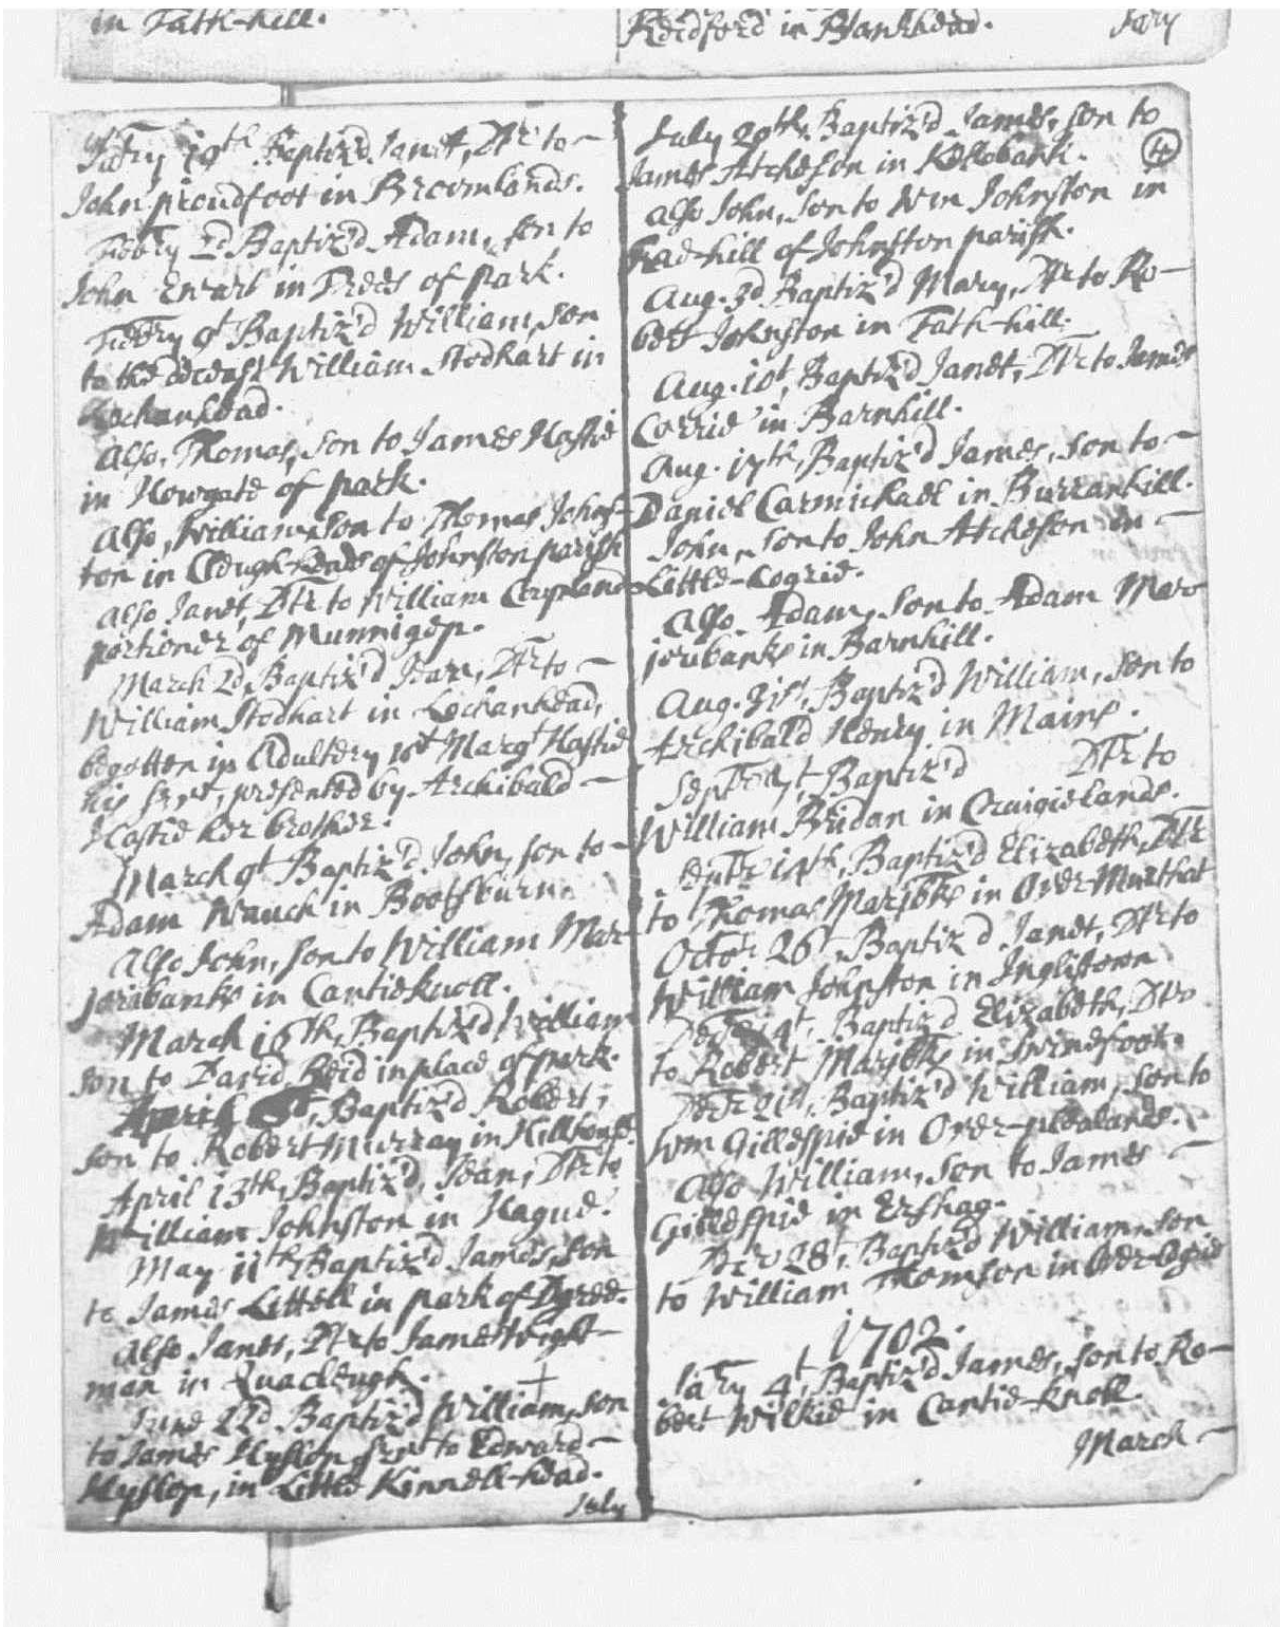 in Fath-hill.
Reidford in Blankhead.
Jary
Ja͞ry 19th Baptiz'd Janet, Dtr to
John proudfoot in Broomlands.
Feb͞ry 2d Baptiz'd Adam, son to
John Ewart in Trees of park.
Feb͞ry 9t Baptiz'd William, son
to the deceast William Stodhart in
Lochanhead.
Also, Thomas, son to James Hastie
in Howgate of park.
Also, William son to Thomas Johns-
ton in Cleugh-heads of Johnston parish
Also Janet, Dtr to William Copland
portioner of Munnigep.
March 2d, Baptiz'd Jean, Dtr to
William Stodhart in Lochanhead,
begotten in Adultery wt Margt Hastie
his servt, presented by Archibald
Hastie her brother.
March 9t Baptiz'd John, son to
Adam Wauch in Bootsburn.
Also John, son to William Mar-
joribanks in Cantieknoll.
March 16th, Baptiz'd William
son to David Reid in place of park.
April, Baptiz'd Robert,
son to Robert Murray in Hillhouse.
April 13th, Baptiz'd, Jean, Dtr to
William Johnston in Hague.
May 11th, Baptiz'd James, son
to James Littell in park of Dyree.
Also Janet, Dtr to James Wight-
man in Quacleugh. +
June 22d, Baptiz'd William, son
to James Hyslop, servt to Edward
Hyslop, in Little Kinnell-head.
July
July 20th, Baptiz'd James, son to
James Atcheson in Kellobank. 4
Also John, son to Wm Johnston in
head-hill of Johnston parish.
Aug. 3d Baptiz'd Mary, Dtr to Ro-
bert Johnston in Fath-hill.
Aug. 10t, Baptiz'd Janet, Dtr to James
Corrie in Barnhill.
Aug. 17th, Baptiz'd James, son to
Daniel Carmichael in Burranhill.
John, son to John Atcheson in
Little-Cogrie.
Also Adam, son to Adam Mar
joribanks in Barnhill.
Aug. 31st, Baptiz'd William, son to
Archibald Henry in Mains.
Sep͞tr, Baptiz'd Dtr to
William Bridan in Craigielands.
Septr 14th, Baptiz'd Elizabeth, Dtr
to Thomas Marjbks in Over-Murthat
Octor 26t, Baptiz'd Janet, Dtr to
William Johnston in Inglistown
Decr 4t, Baptiz'd Elizabeth, Dtr
to Robert Marjbks in Swinefoot.
Decr 21st, Baptiz'd William, son to
Wm Gillespie in Over-plealands.
Also William, son to James
Gillespie in Ershag.
Decr 28t, Baptiz'd William, son
to William Thomson in Over-Cogrie
1702.
Ja͞ry 4t, Baptiz'd James, son to Ro-
bert Wilkie in Cantie-knoll.
March